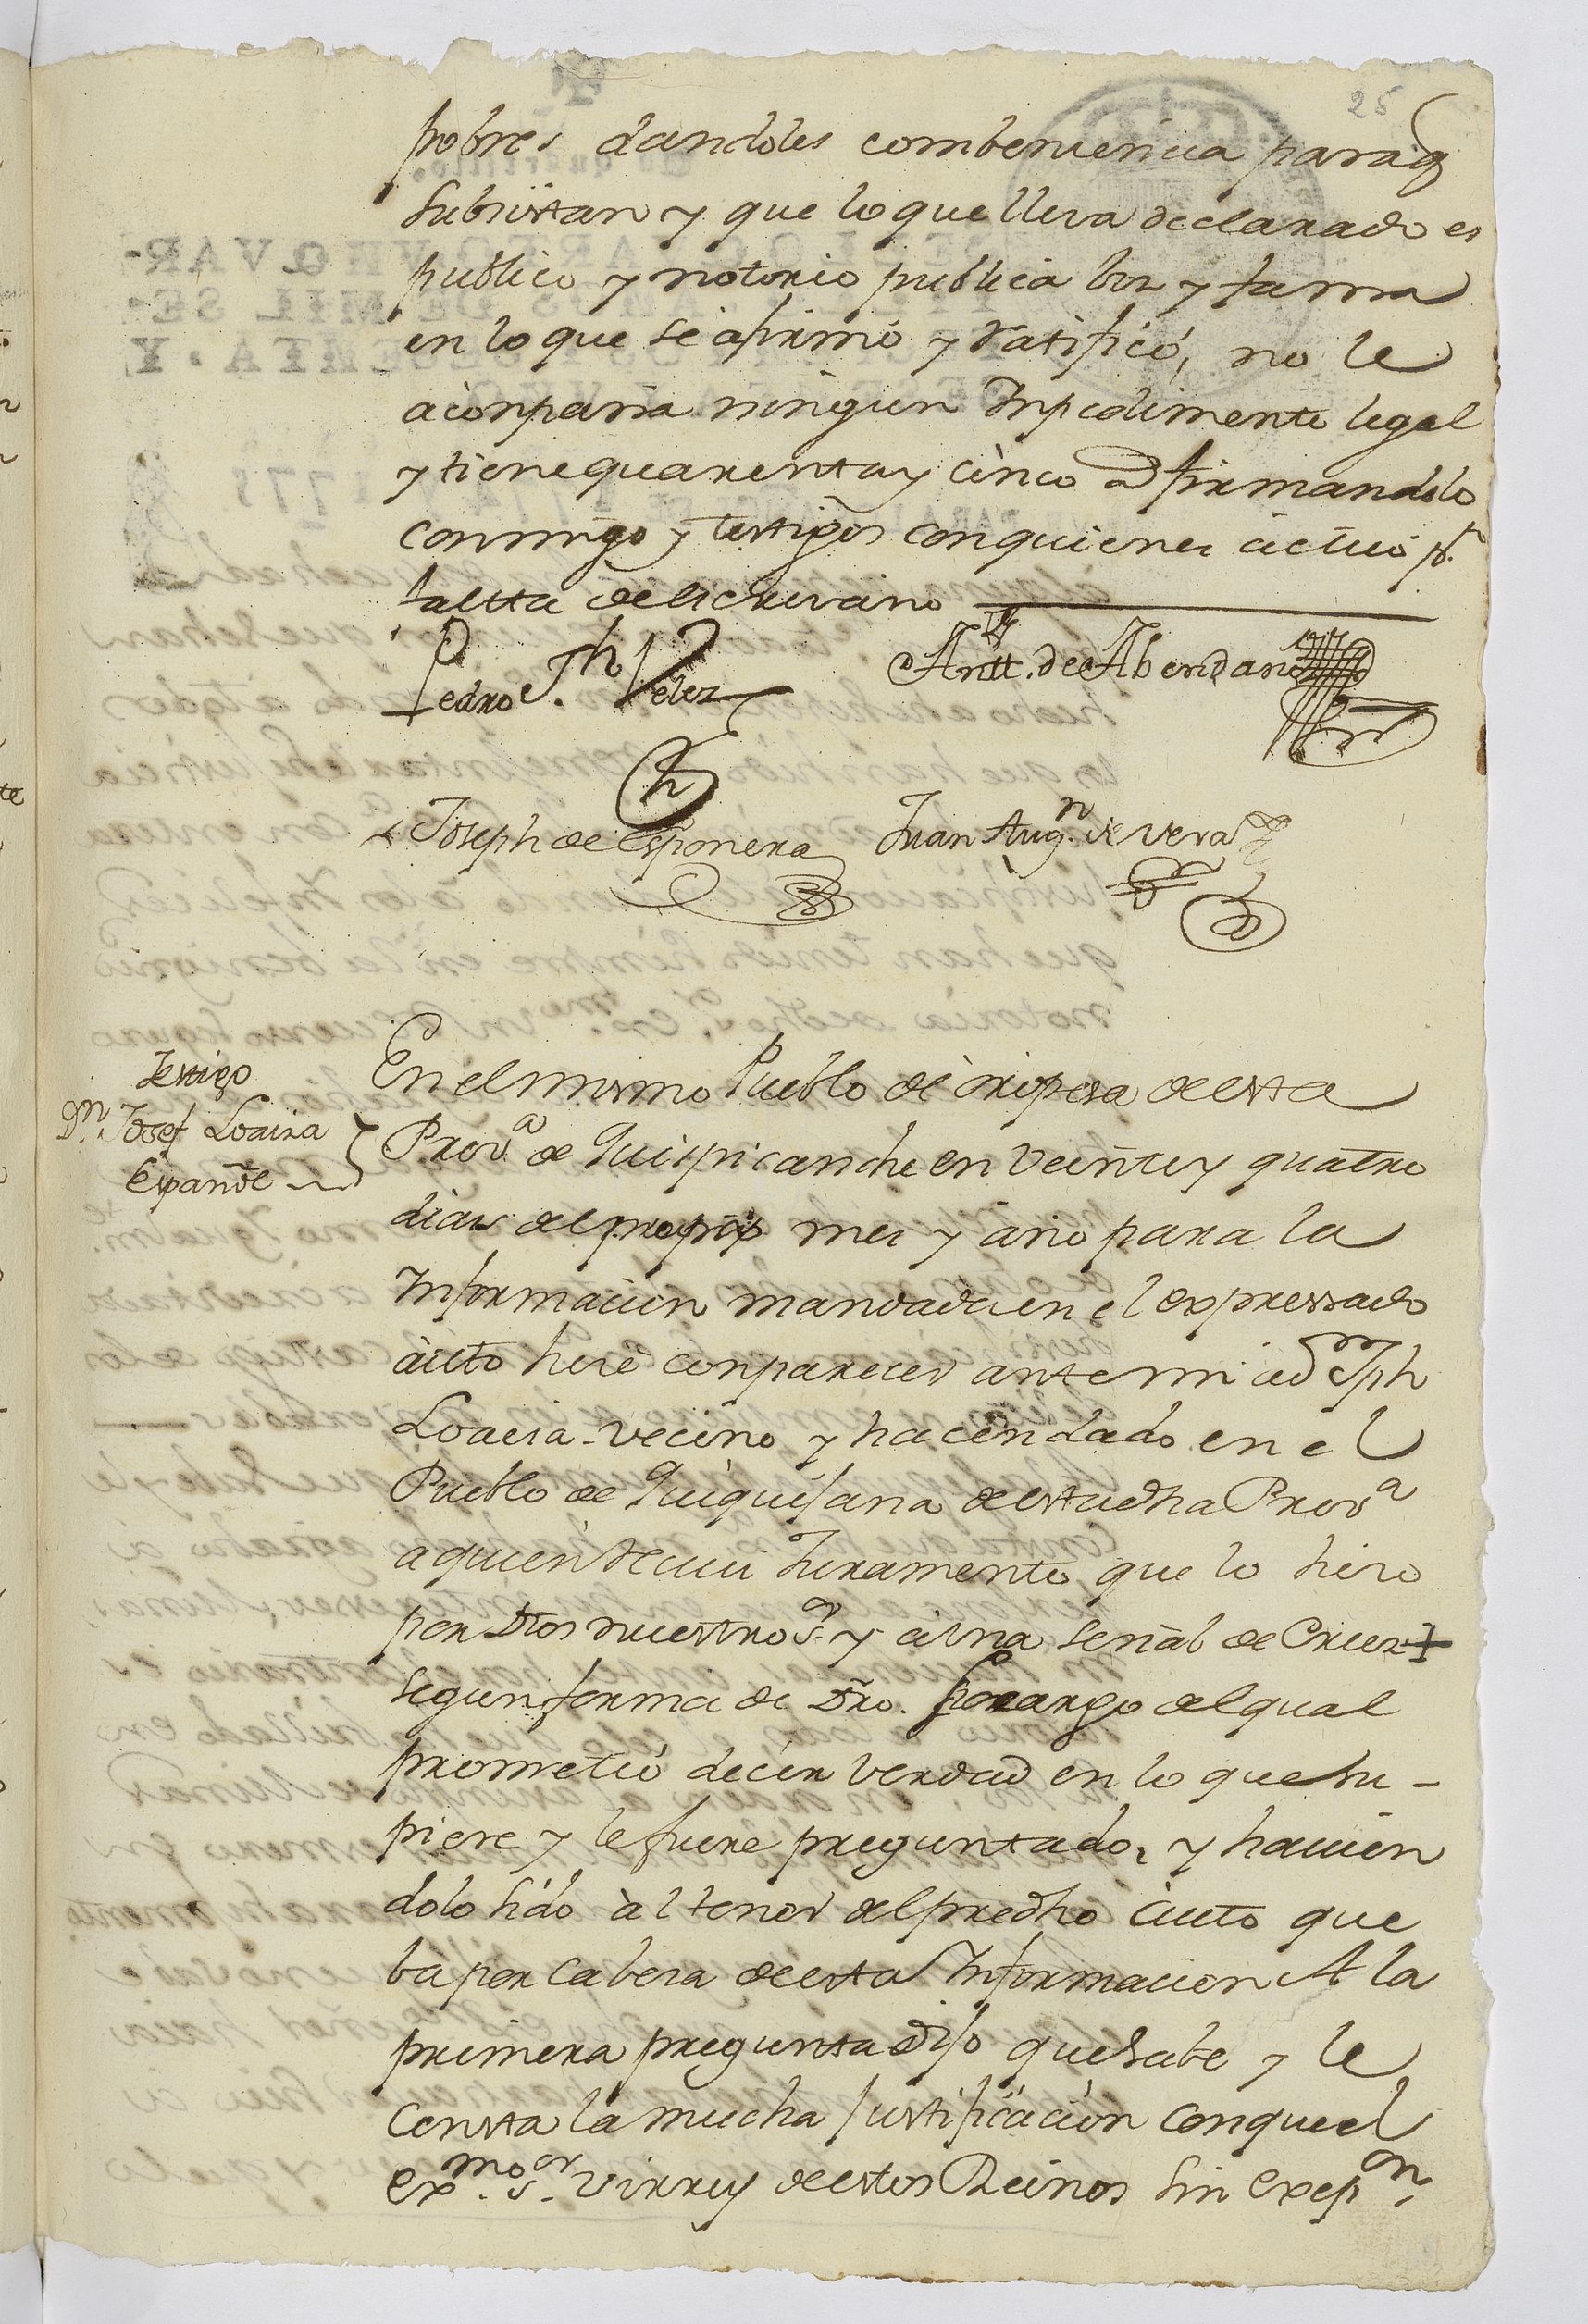 25
pobres dandoles combeniencia paraq
subsistan y que lo que lleva declarado es
publico y notorio publica boz y fama
en lo que se afirmó y ratificó, no le
aconpaña ningun Inpedimento legal
y tiene quarenta y cinco a firmandolo
conmigo y testigos con quienes actuó pr.
faltta de escrivano
Pedro Jph Velez
Antt. de Abendaño
Joseph de Esponera
Juan Augn. de Vera
Testigo
Dn. Josef Loaiza
Español
En el mismo Pueblo de òropesa de esta
Prova. de Quispicanche en veinte y quatro
dias del propio mes y año para la
Informacion mandada en el expressado
àuto hice conparecer ante mi a Dn Jph
Loaisa vecino y hacendado en el
Pueblo de Quiquijana de esta dha Prova
a quien recivi Juramento que lo hizo
por Dios nuestro Sr. y a una señal de Cruz +
segun forma de Dro. so cargo del qual
prometió decir verdad en lo que su-
piere y le fuere preguntado, y havien
dolo sido àl tenor del predho àuto que
bà por cabeza de esta Informacion A la
primera pregunta dijo que sabe y le
consta la mucha justificacion con que el
Exmo. Sr. Virrey de estos Reinos sin Excepn.